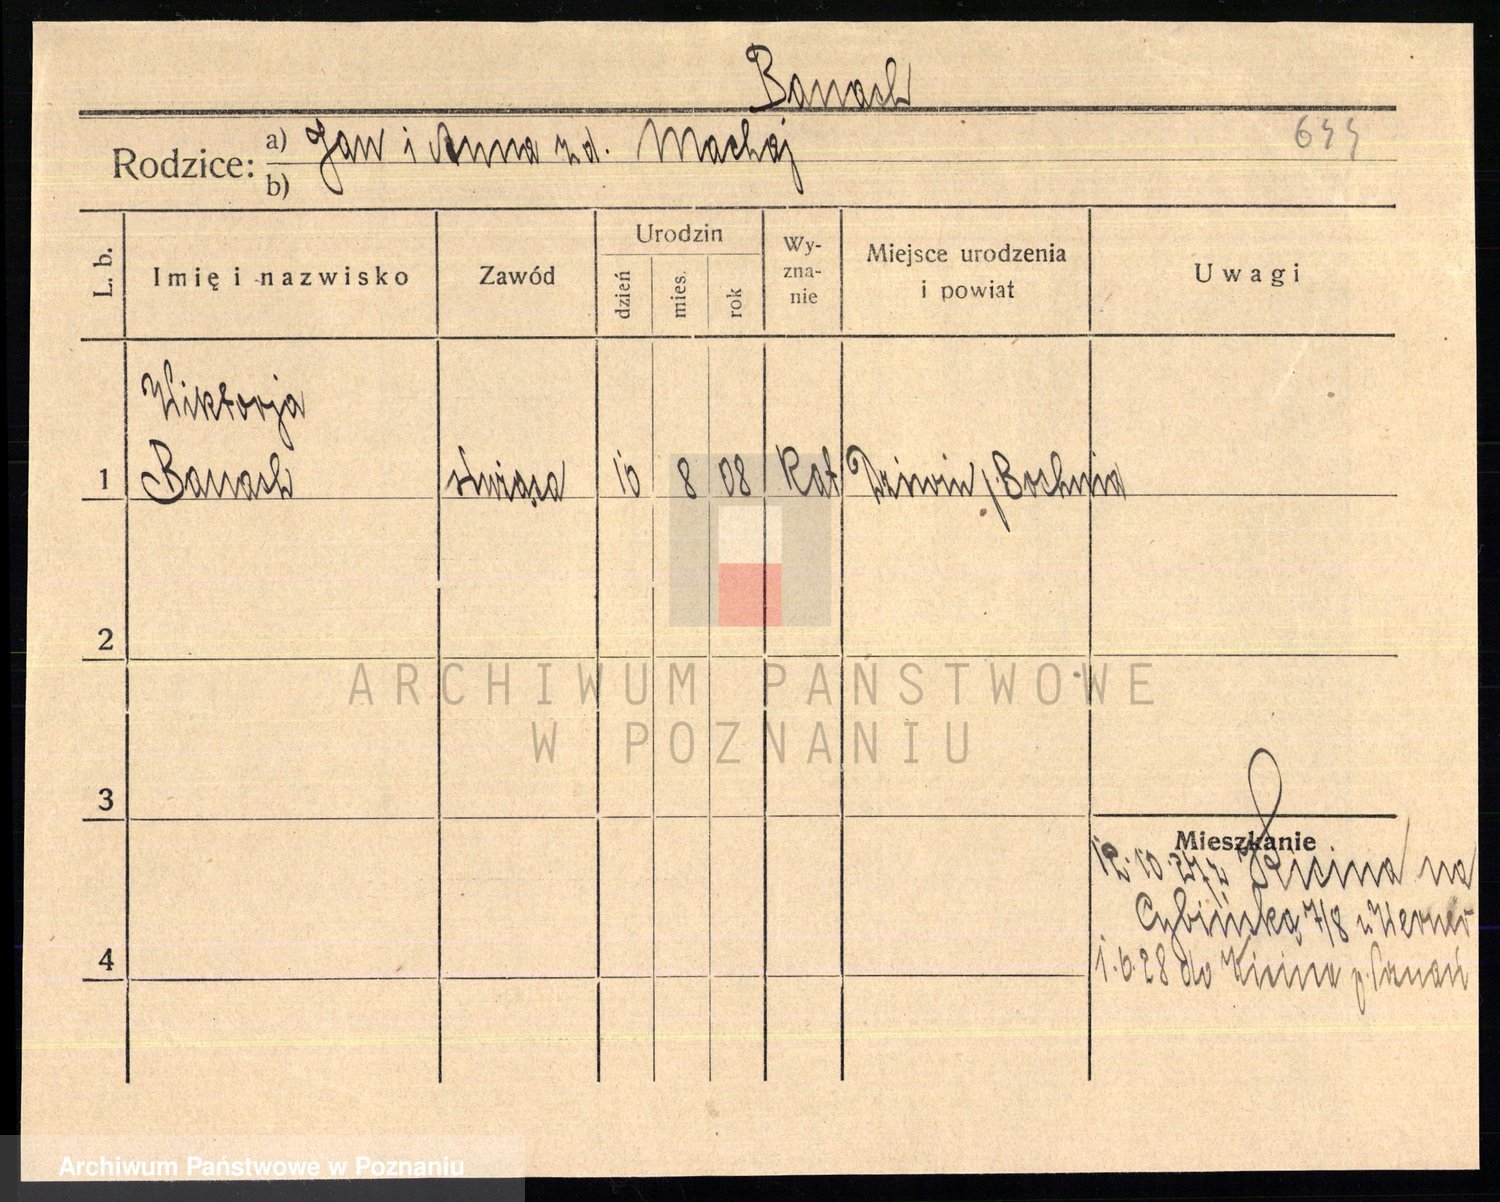 Banach
644
Rodzice: a) Jan i Anna zd. Machaj
b)
L. b.
Imię i nazwisko
Zawód
Urodzin
dzień
mies.
rok
Wy-
zna-
nie
Miejsce urodzenia
i powiat
Uwagi
Wiktorja
1 Banach służąca 10 8 08 Kat Dziwin p. Bochnia
2
ARCHIWUM PAŃSTWOWE
W POZNANIU
3
Mieszkanie
12.10.27 z Kicina na
Cybińską 7/8 u Werner
4
1.6.28 do Kicina p. Poznań
Archiwum Państwowe w Poznaniu